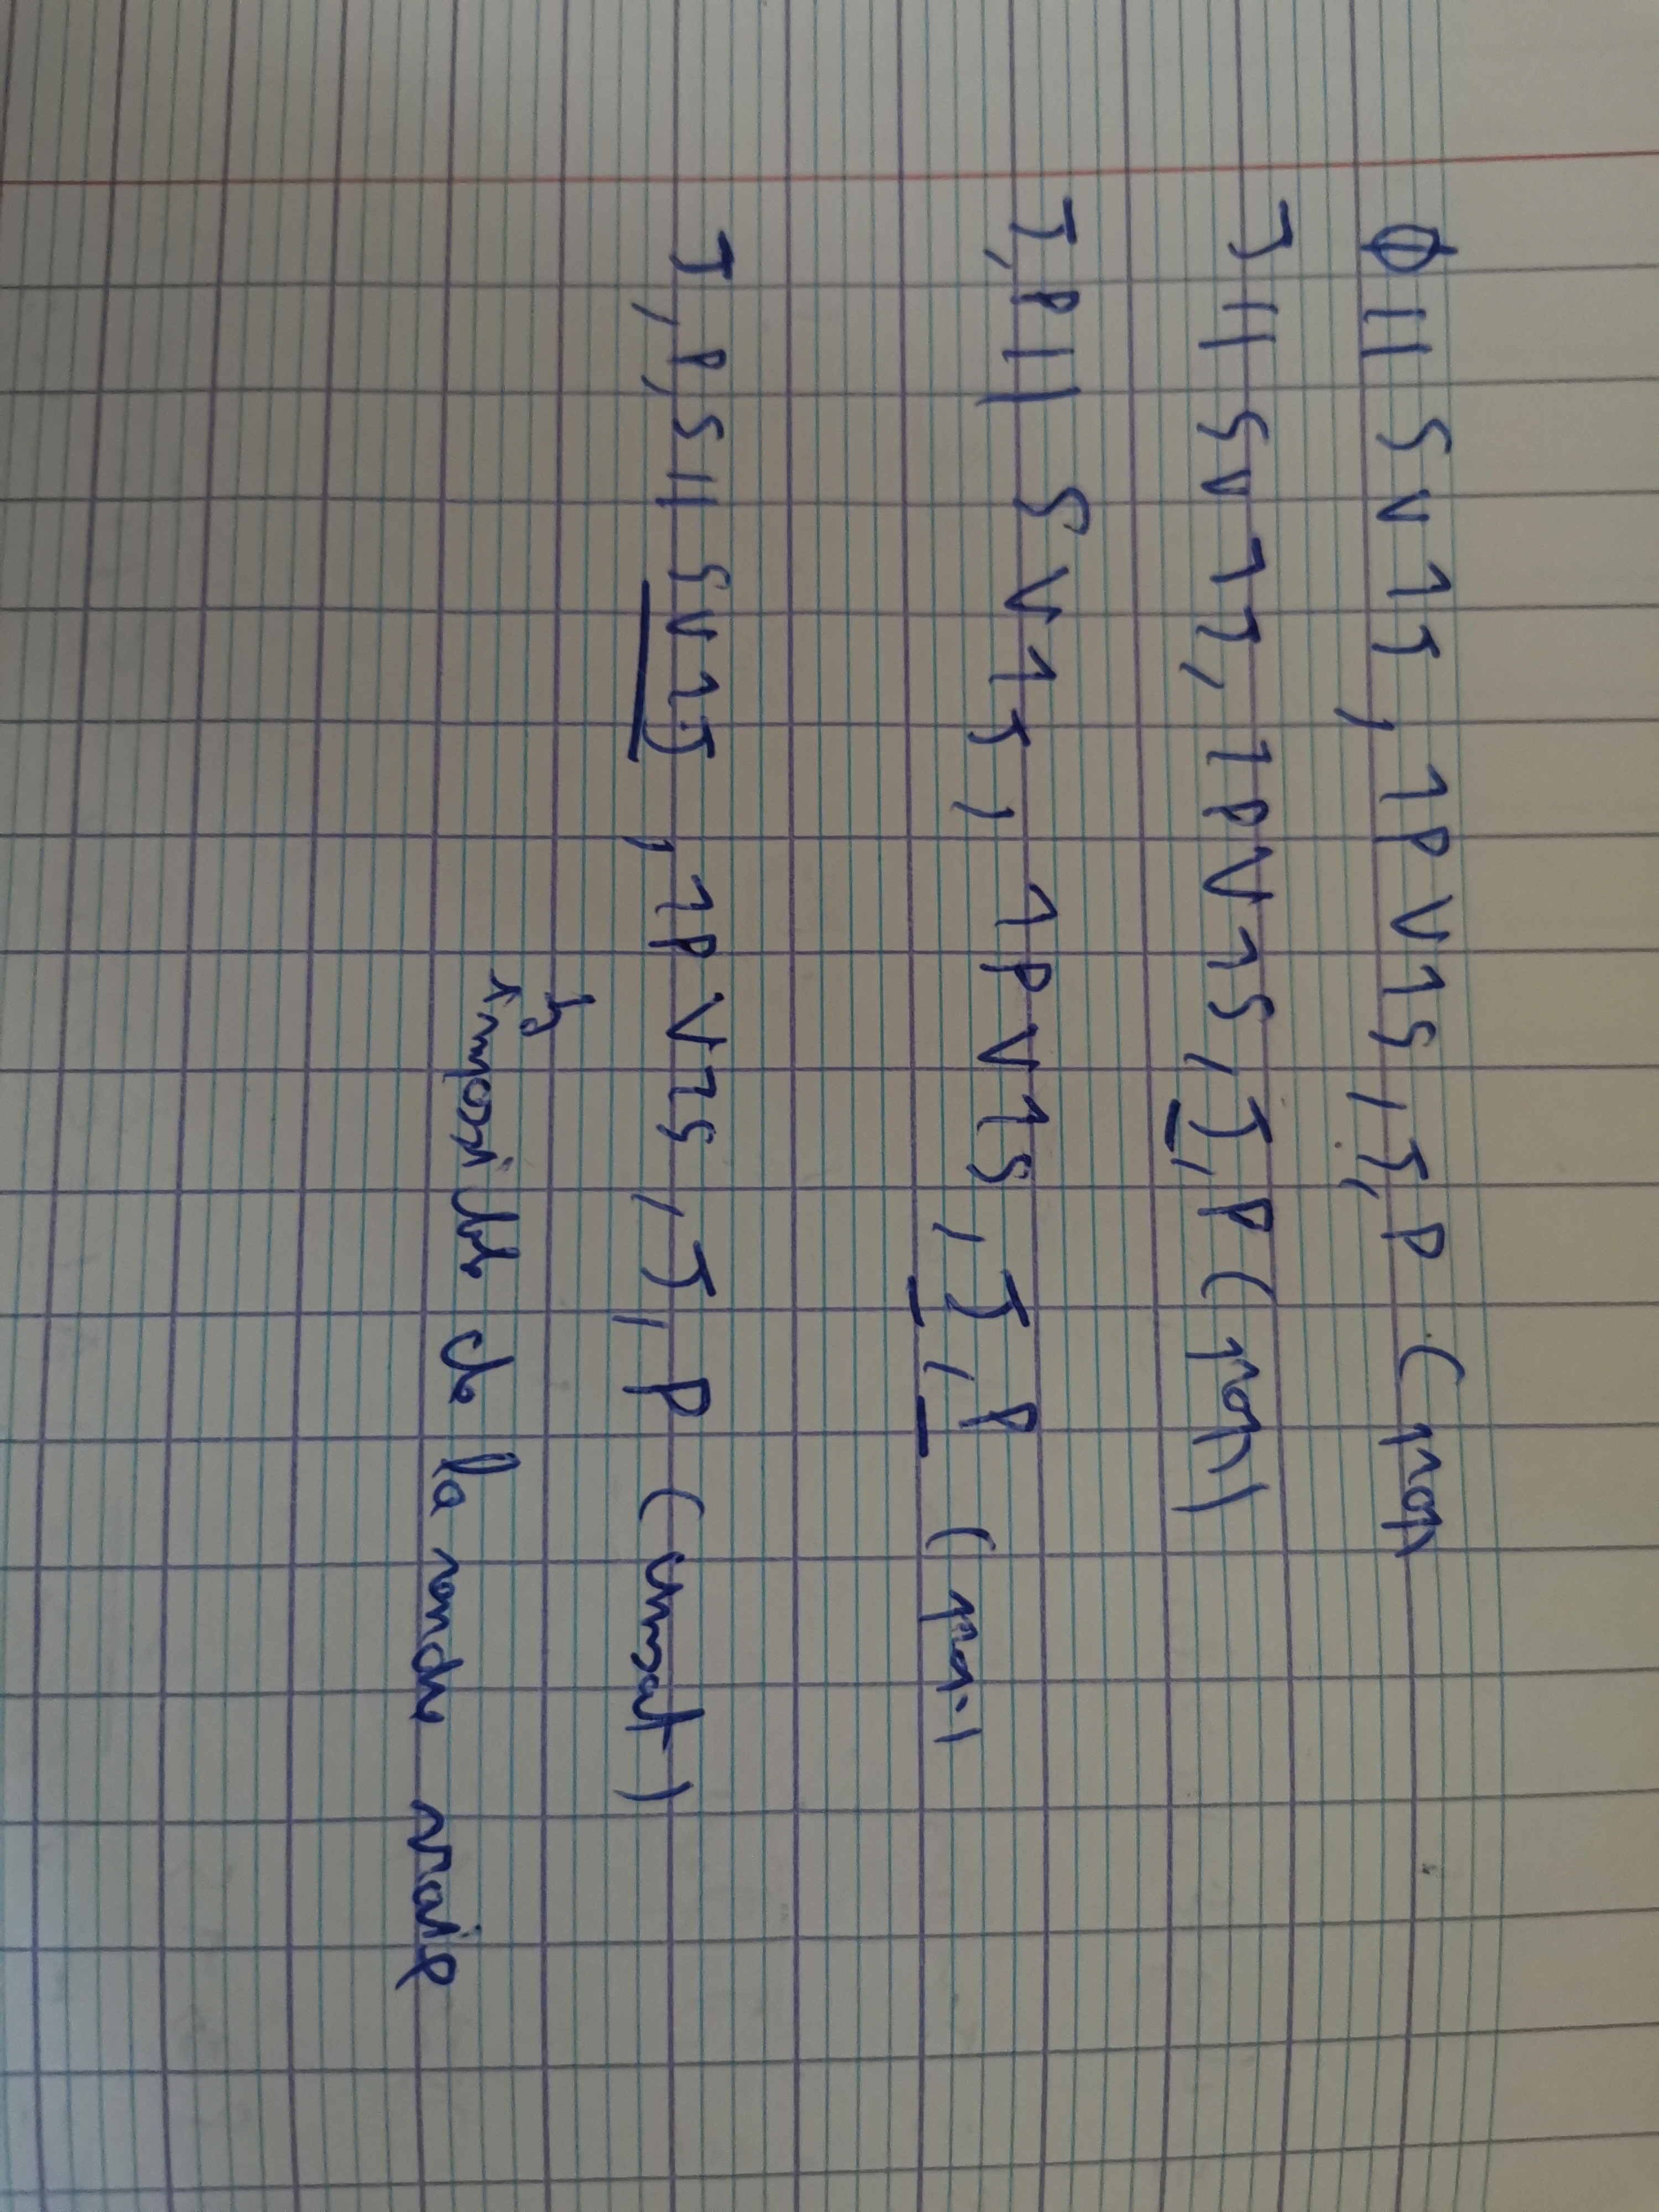 ∅ || S ∨ ¬J, ¬P ∨ ¬S, J, P (prop
J || S ∨ ¬J, ¬P ∨ ¬S, J, P (prop)
J, P || S ∨ ¬J, ¬P ∨ ¬S, J, P (prop)
J, P, S || S ∨ ¬J, ¬P ∨ ¬S, J, P (unsat)
↳
impossible de la rendre vraie